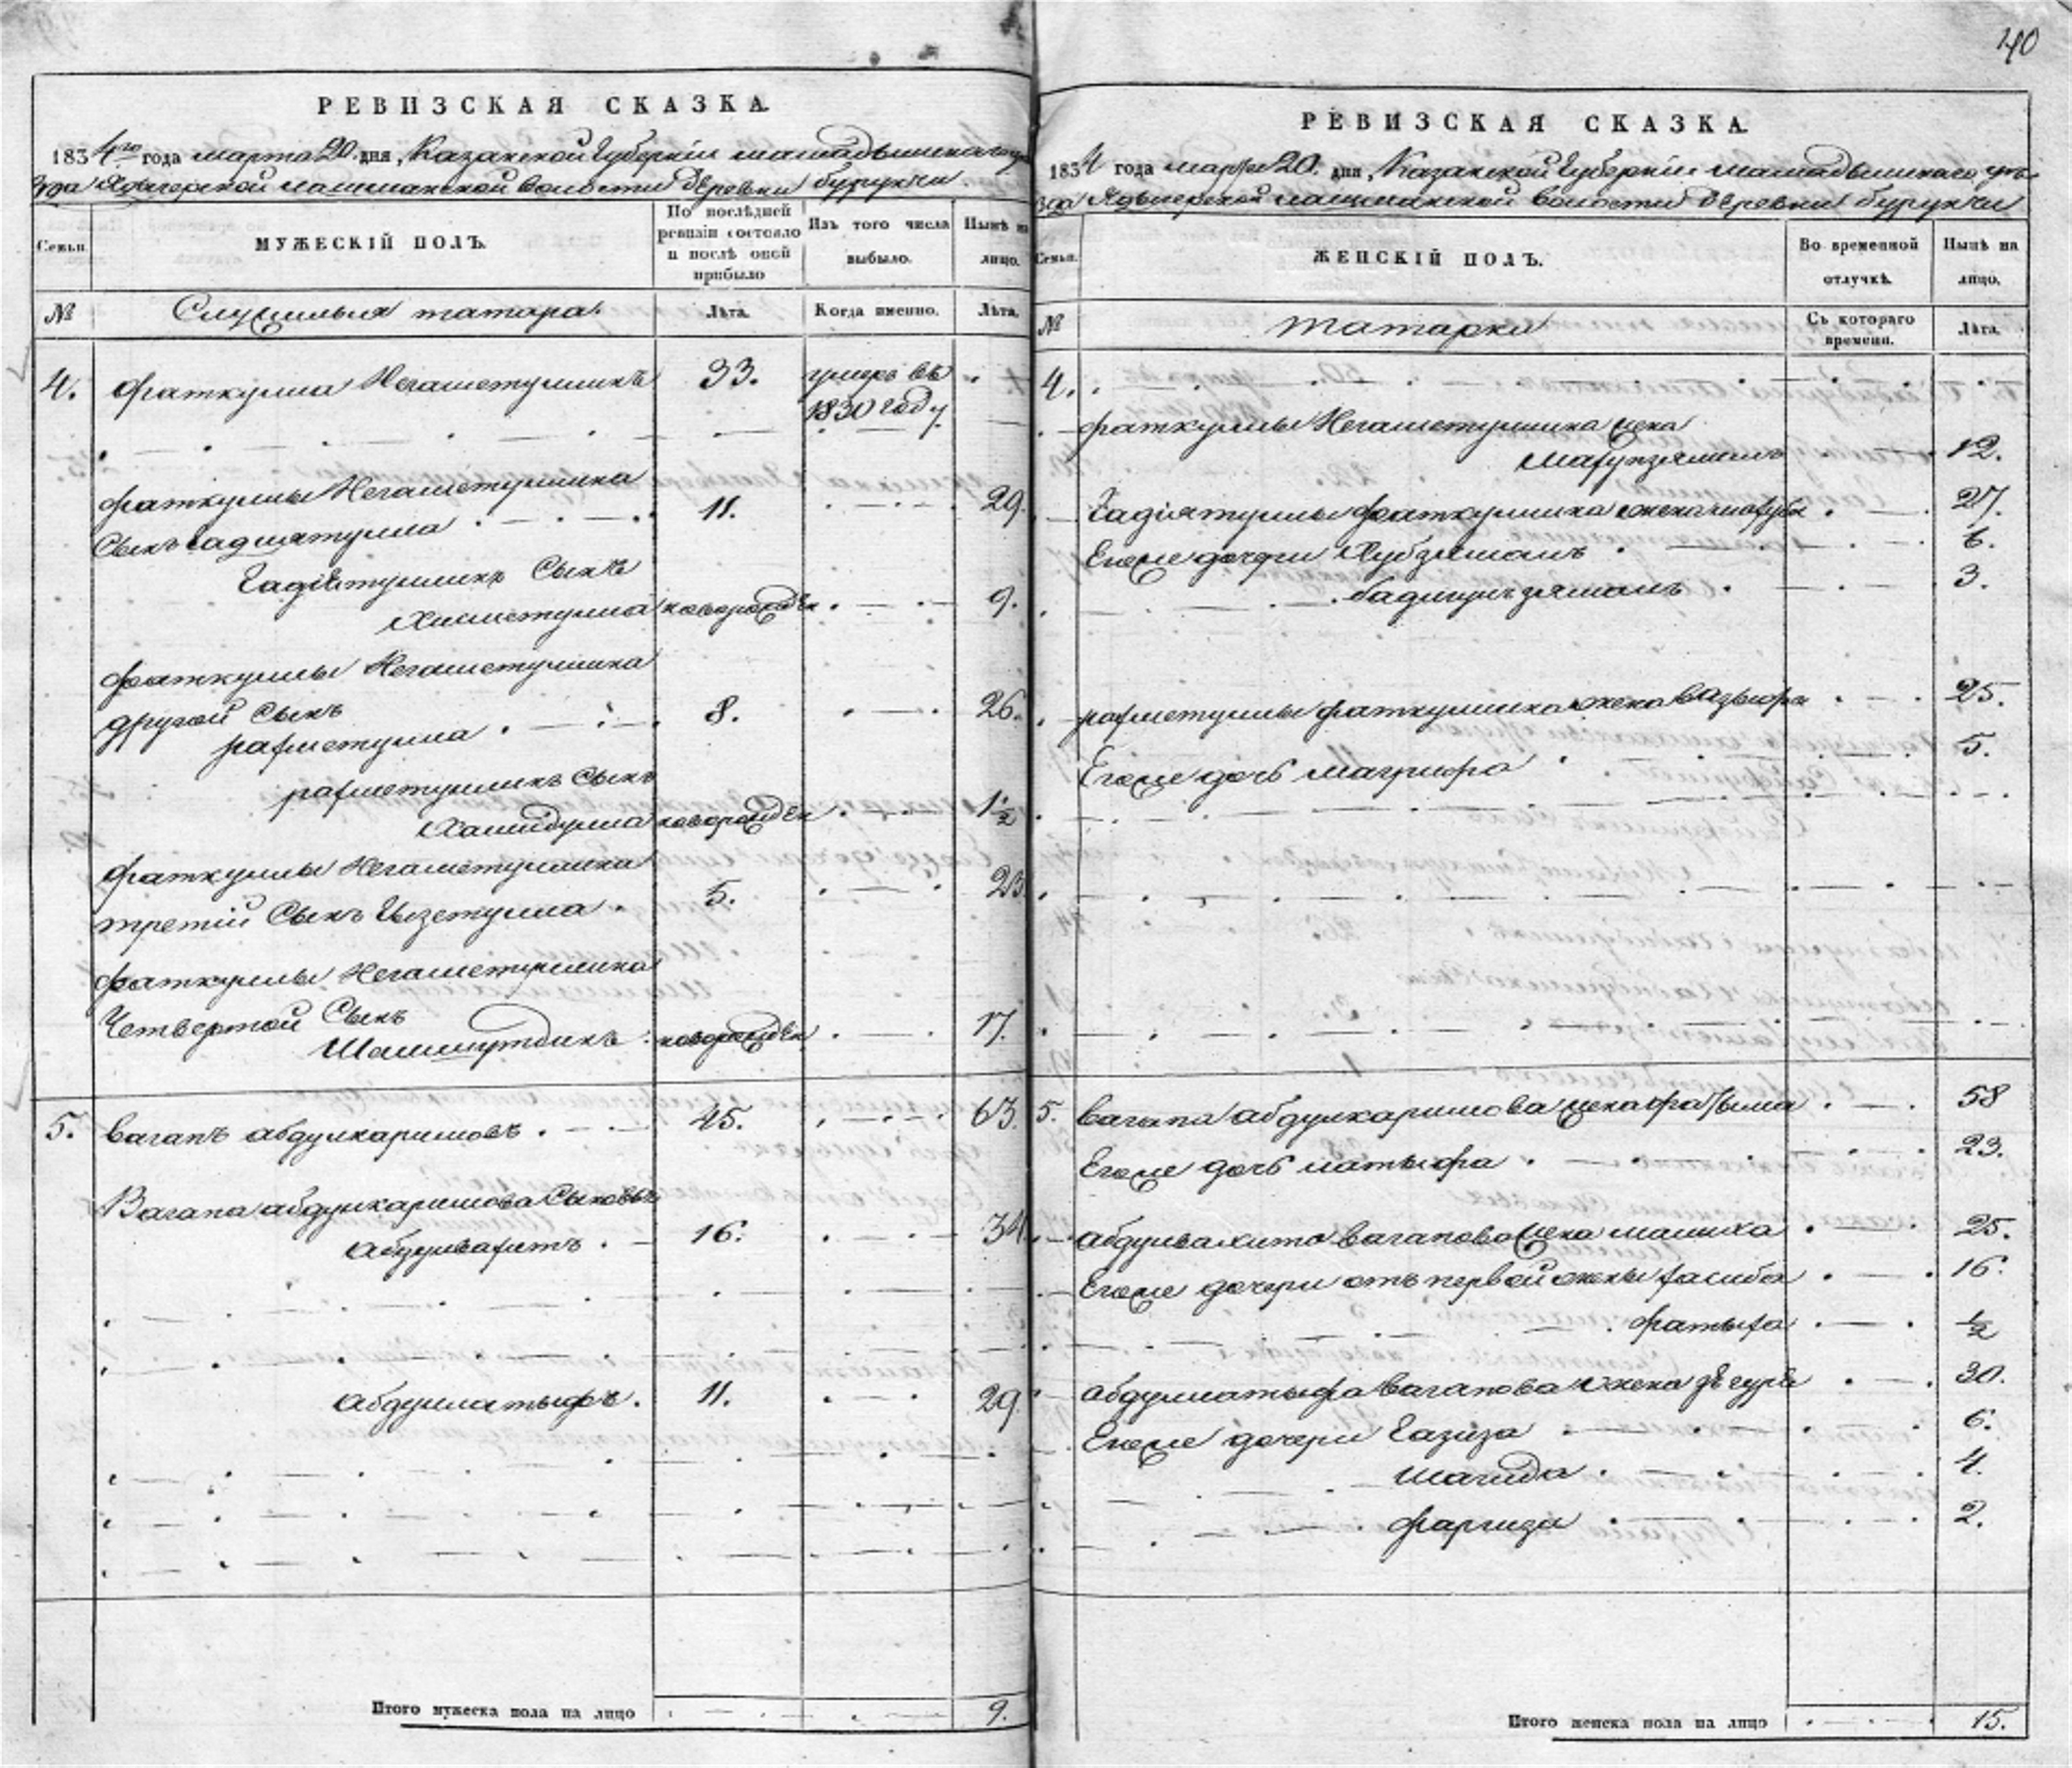 40
РЕВИЗСКАЯ СКАЗКА.
1834го года марта 20 дня, Казанской Губернiи мамадышскаго уѣ
зда лашманской волости деревни бурунчи
Семьи.
МУЖЕСКIЙ ПОЛЪ.
По послѣдней ревизiи состояло и послѣ оной прибыло
Изъ того числа выбыло.
Нынѣ на лицо.
№
Служилыя татара.
Лѣта.
Когда именно.
Лѣта.
4. фаткулла Негаметуллинъ 33. умеръ въ
1830 году
фаткуллы Негаметуллина
Сынъ гадиятулла 11. 29.
Гадiятуллинъ Сынъ
Хисметулла новорожден 9.
фаткуллы Негаметуллина
другой Сынъ
рахметулла 8. 26.
рахметуллинъ Сынъ
Хамидулла новорожден 1 1/2
фаткуллы Негаметуллина
третiй Сынъ Гызетулла 5. 23
фаткуллы Негаметуллина
Четвертой Сынъ
Шамшутдинъ новорожден 17.
5. вагапъ абдулкаримовъ 45. 63.
Вагапа абдулкаримова Сыновья
абдулвахитъ 16. 34
абдуллатыфъ 11. 29
Итого мужеска пола на лицо 9.
РЕВИЗСКАЯ СКАЗКА.
1834 года марта 20. дня, Казанской Губернiи мамадышскаго уѣ
зда лашманской волости деревни бурунчи
Семьи.
ЖЕНСКIЙ ПОЛЪ.
Во временной отлучкѣ.
Нынѣ на лицо.
№
татарки
Съ котораго времени.
Лѣта.
4.
фаткуллы Негаметуллина жена
12.
Гадiятуллы фаткуллина жена 27.
Егоже дочери Хубзямалъ 6.
бадигулъзямалъ 3.
рахметуллы фаткуллина жена вазыфа 25.
Егоже дочь магруфа 5.
5. вагапа абдулкаримова жена фатыма 58
Егоже дочь латыфа 23.
абдулвахита вагапова жена малиха 25.
Егоже дочери отъ первой жены хасиба 16.
фатыха 1/2
абдуллатыфа вагапова жена зѣгура 30.
Егоже дочери Газиза 6.
шагида 4.
фаргиза 2.
Итого женска пола на лицо 15.